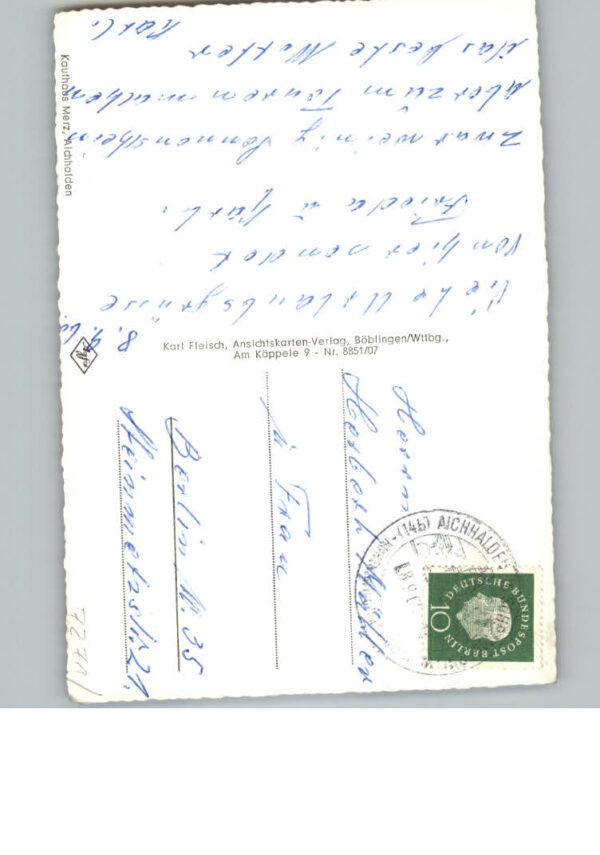 8.9.60
Liebe Urlaubsgrüsse
von hier sendet
Frieda u Karl.
Zwar wenig Sonnenschein
aber zum Touren machen
das beste Wetter
Karl.
Kaufhaus Merz, Aichhalden
Karl Fleisch, Ansichtskarten-Verlag, Böblingen/Wttbg.,
Am Käppele 9 - Nr. 8851/07
Agfa
Herrn
Herbert
u Frau
Berlin, W 35
Steinmetzstr. 21.
(14b) AICHHALDEN
DEUTSCHE BUNDESPOST BERLIN
10
727a/